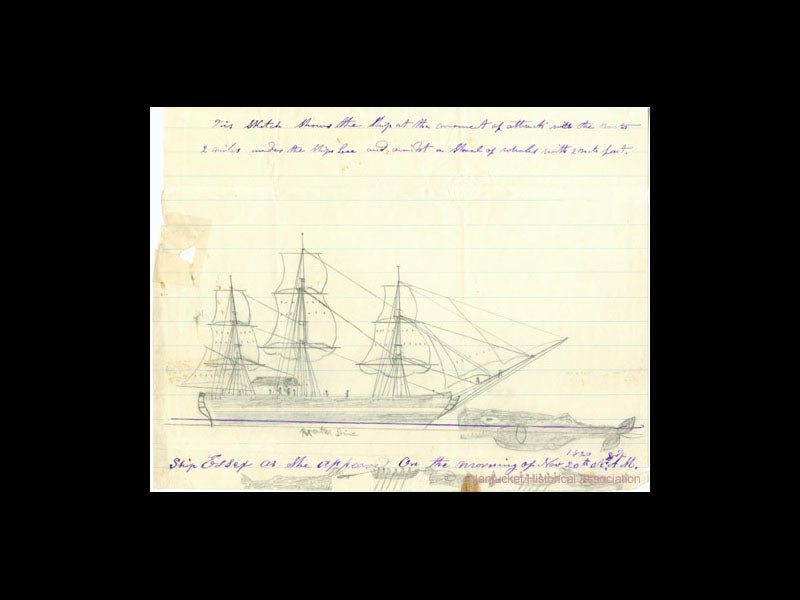 This Sketch Shows the Ship at the moment of attack with the Boats
2 miles under the Ships Lee and, amidst a Shoal of whales with 2 Boats fast.
Water Line
Ship Essex as She appeared On the morning of Nov 20th 1820 at 8 A.M.
Nantucket Historical Association